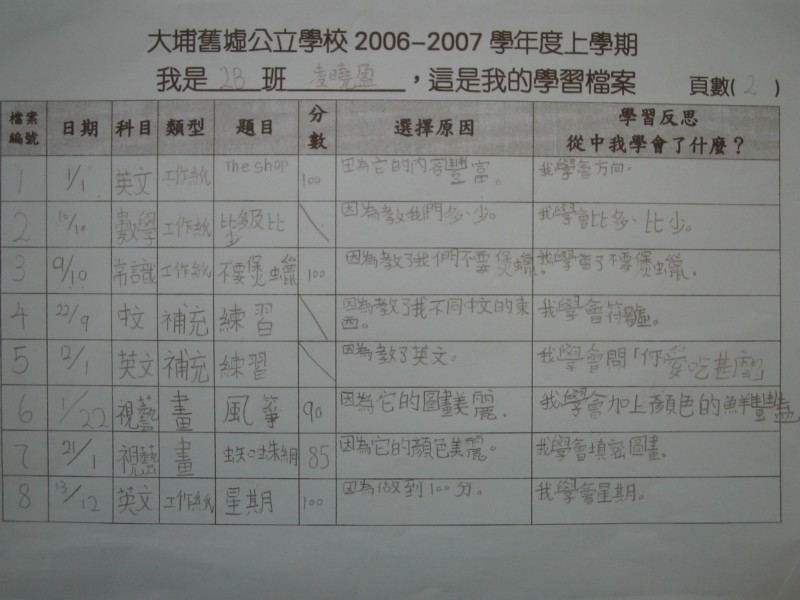 大埔舊墟公立學校 2006-2007 學年度上學期
我是 2B 班 凌曉盈 ，這是我的學習檔案 頁數( 2 )
檔案編號 日期 科目 類型 題目 分數 選擇原因 學習反思 從中我學會了什麼？
1 1/1 英文 工作紙 The shop 100 因為它的內容豐富。 我學會方向。
2 10/10 數學 工作紙 比多及比少 因為教我們多、少。 我學會比多、比少。
3 9/10 常識 工作紙 不要煲蠟 100 因為教了我們不要煲蠟。 我學會了不要煲蠟。
4 22/9 中文 補充 練習 因為教了我不同中文的東西。 我學會符號。
5 2/1 英文 補充 練習 因為教了英文。 我學會問「你愛吃甚麼」
6 1/22 視藝 畫 風箏 90 因為它的圖畫美麗。 我學會加上顏色的鮮豔
7 21/1 視藝 畫 85 因為它的顏色美麗。 我學會填密圖畫。
8 13/12 英文 工作紙 星期 100 因為做到100分。 我學會星期。